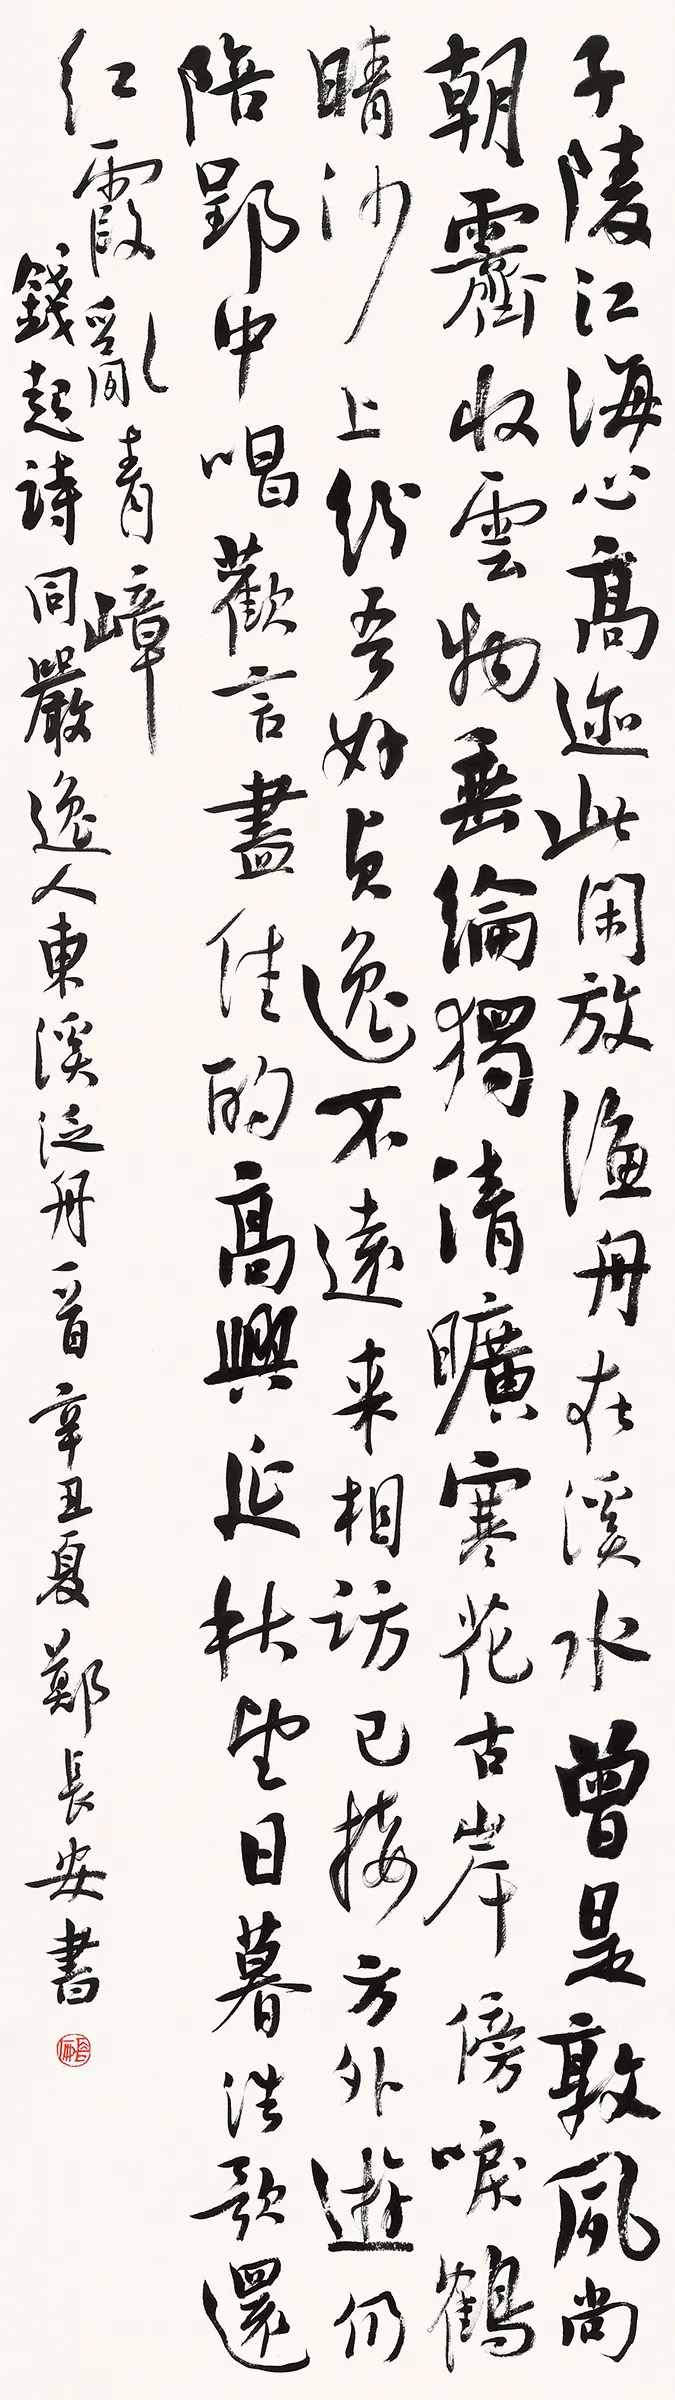 子陵江海心高迹此閑放漁舟在溪水曾是敦夙尚
朝霽收雲物垂綸獨清曠寒花古岸傍唳鶴
晴沙上紛吾好貞逸不遠来相訪已接方外遊仍
陪郢中唱歡言盡佳酌高興延秋望日暮浩歌還
紅霞亂青嶂
錢起詩同嚴逸人東溪泛舟一首辛丑夏鄭長安書